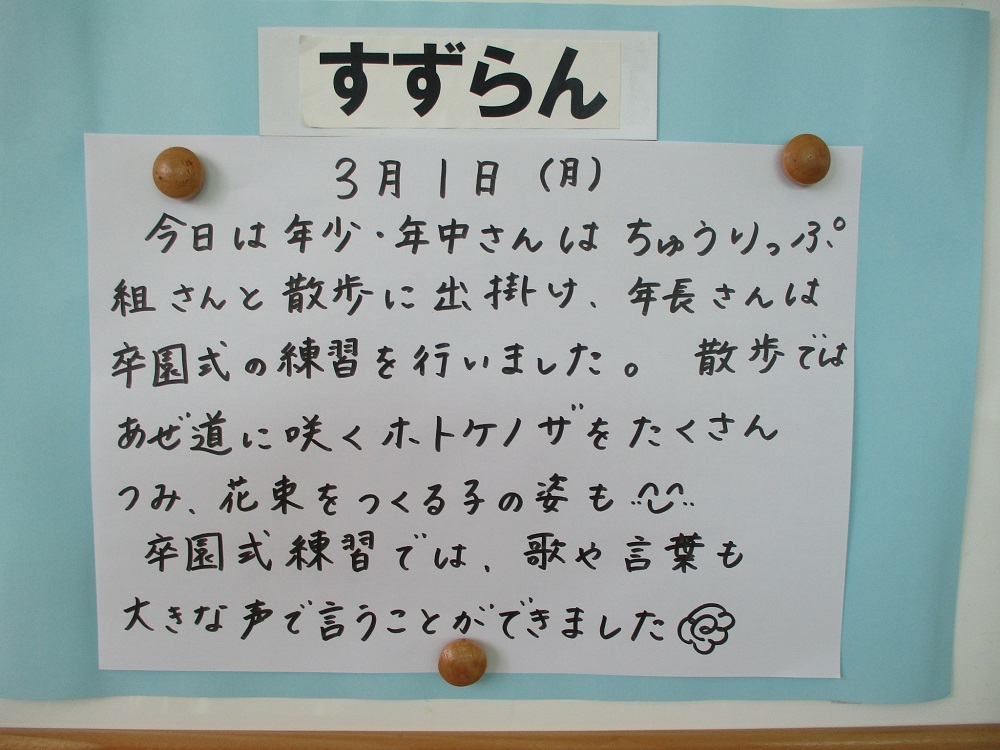 すずらん
3月1日(月)
今日は年少・年中さんは ちゅうりっぷ
組さんと散歩に出掛け、年長さんは
卒園式の練習を行いました。 散歩では
あぜ道に咲くホトケノザをたくさん
つみ、花束をつくる子の姿も
卒園式練習では、歌や言葉も
大きな声で言うことができました